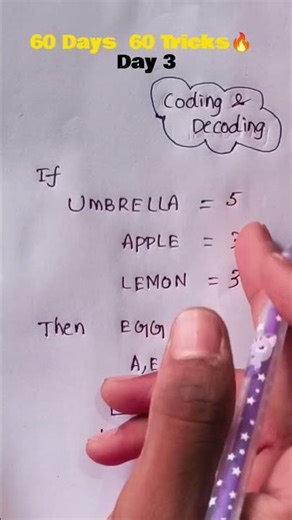 60 Days 60 Tricks🔥
Day 3
Coding &
Decoding
If
UMBRELLA = 5
APPLE = 3
LEMON = 3
Then EGG
A, E